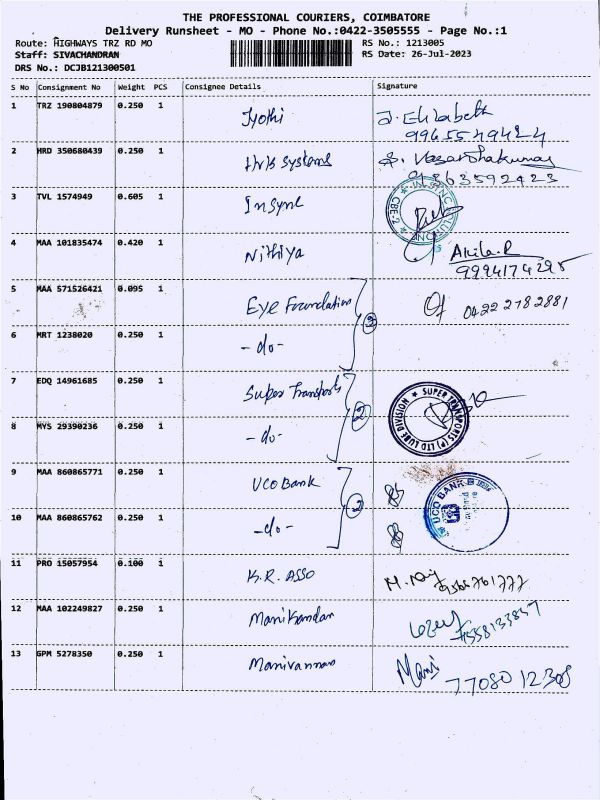 THE PROFESSIONAL COURIERS, COIMBATORE
Delivery Runsheet - MO - Phone No.:0422-3505555 - Page No.:1
Route: HIGHWAYS TRZ RD MO RS No.: 1213005
Staff: SIVACHANDRAN RS Date: 26-Jul-2023
DRS No.: DCJB121300501
S No Consignment No Weight PCS Consignee Details Signature
1 TRZ 190804879 0.250 1 Jyothi J. Elizabeth
9965549424
2 HRD 350680439 0.250 1 Hvb Systems
9186359 2423
3 TVL 1574949 0.605 1 Insync
CBE-2
4 MAA 101835474 0.420 1 Nithiya Akila.R
9994174295
5 MAA 571526421 0.095 1 Eye Foundation 0422 2782881
3
6 MRT 1238020 0.250 1 -do-
7 EDQ 14961685 0.250 1 Super Transports
SUPER TRANSPORTS (P) LTD LUBE DIVISION
2
8 MYS 29390236 0.250 1 -do-
9 MAA 860865771 0.250 1 UCO Bank
UCO BANK
10 MAA 860865762 0.250 1 -do-
11 PRO 15057954 0.100 1 K.R. ASSO
12 MAA 102249827 0.250 1 Manikandan
13 GPM 5278350 0.250 1 Manivannan Mani
77080 12308